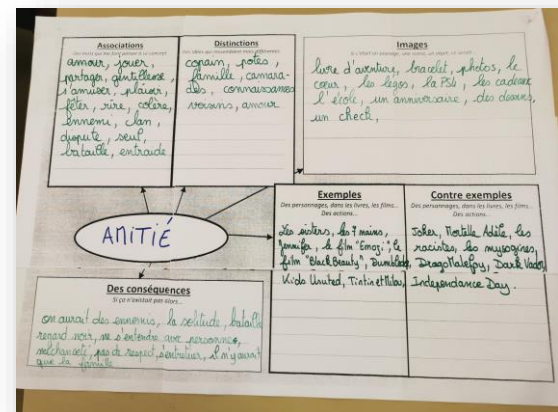 Associations
amour, jouer,
partager, gentillesse,
s'amuser, plaisir,
fêter, rire, colère,
ennemi, clan,
dispute, seul,
bataille, entraide
Distinctions
copain, potes,
famille, camara-
des, connaissances
voisins, amour
Images
livre d'aventure, bracelet, photos, le
cœur, les legos, la PS4, les cadeaux
l'école, un anniversaire, des dessins,
un check,
AMITIÉ
Exemples
Des personnages, dans les livres, les films...
Des actions...
Les sisters, les 7 nains,
Jennifer, le film "Emoji", le
film "Black Beauty", Dumbledore,
Kids United, Tintin et Milou,
Contre exemples
Des personnages, dans les livres, les films...
Des actions...
Joker, Mortelle Adèle, les
racistes, les mysogines,
Drago Malefoy, Dark Vador,
Independance Day.
Des conséquences
Si ça n'existait pas alors...
on aurait des ennemis, la solitude, bataille
regard noir, ne s'entendre avec personnes,
méchanceté, pas de respect, s'entretuer, il n'y aurait
que la famille